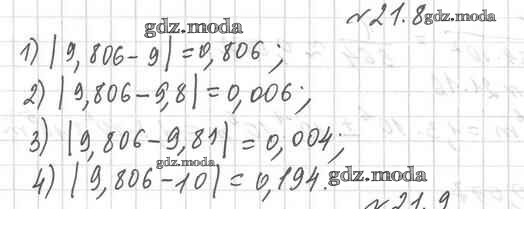 gdz.moda
№21.8 gdz.moda
1) |9,806-9|=0,806;
2) |9,806-9,8|=0,006;
3) |9,806-9,81|=0,004;
gdz.moda
4) |9,806-10|=0,194. gdz.moda
№21.9